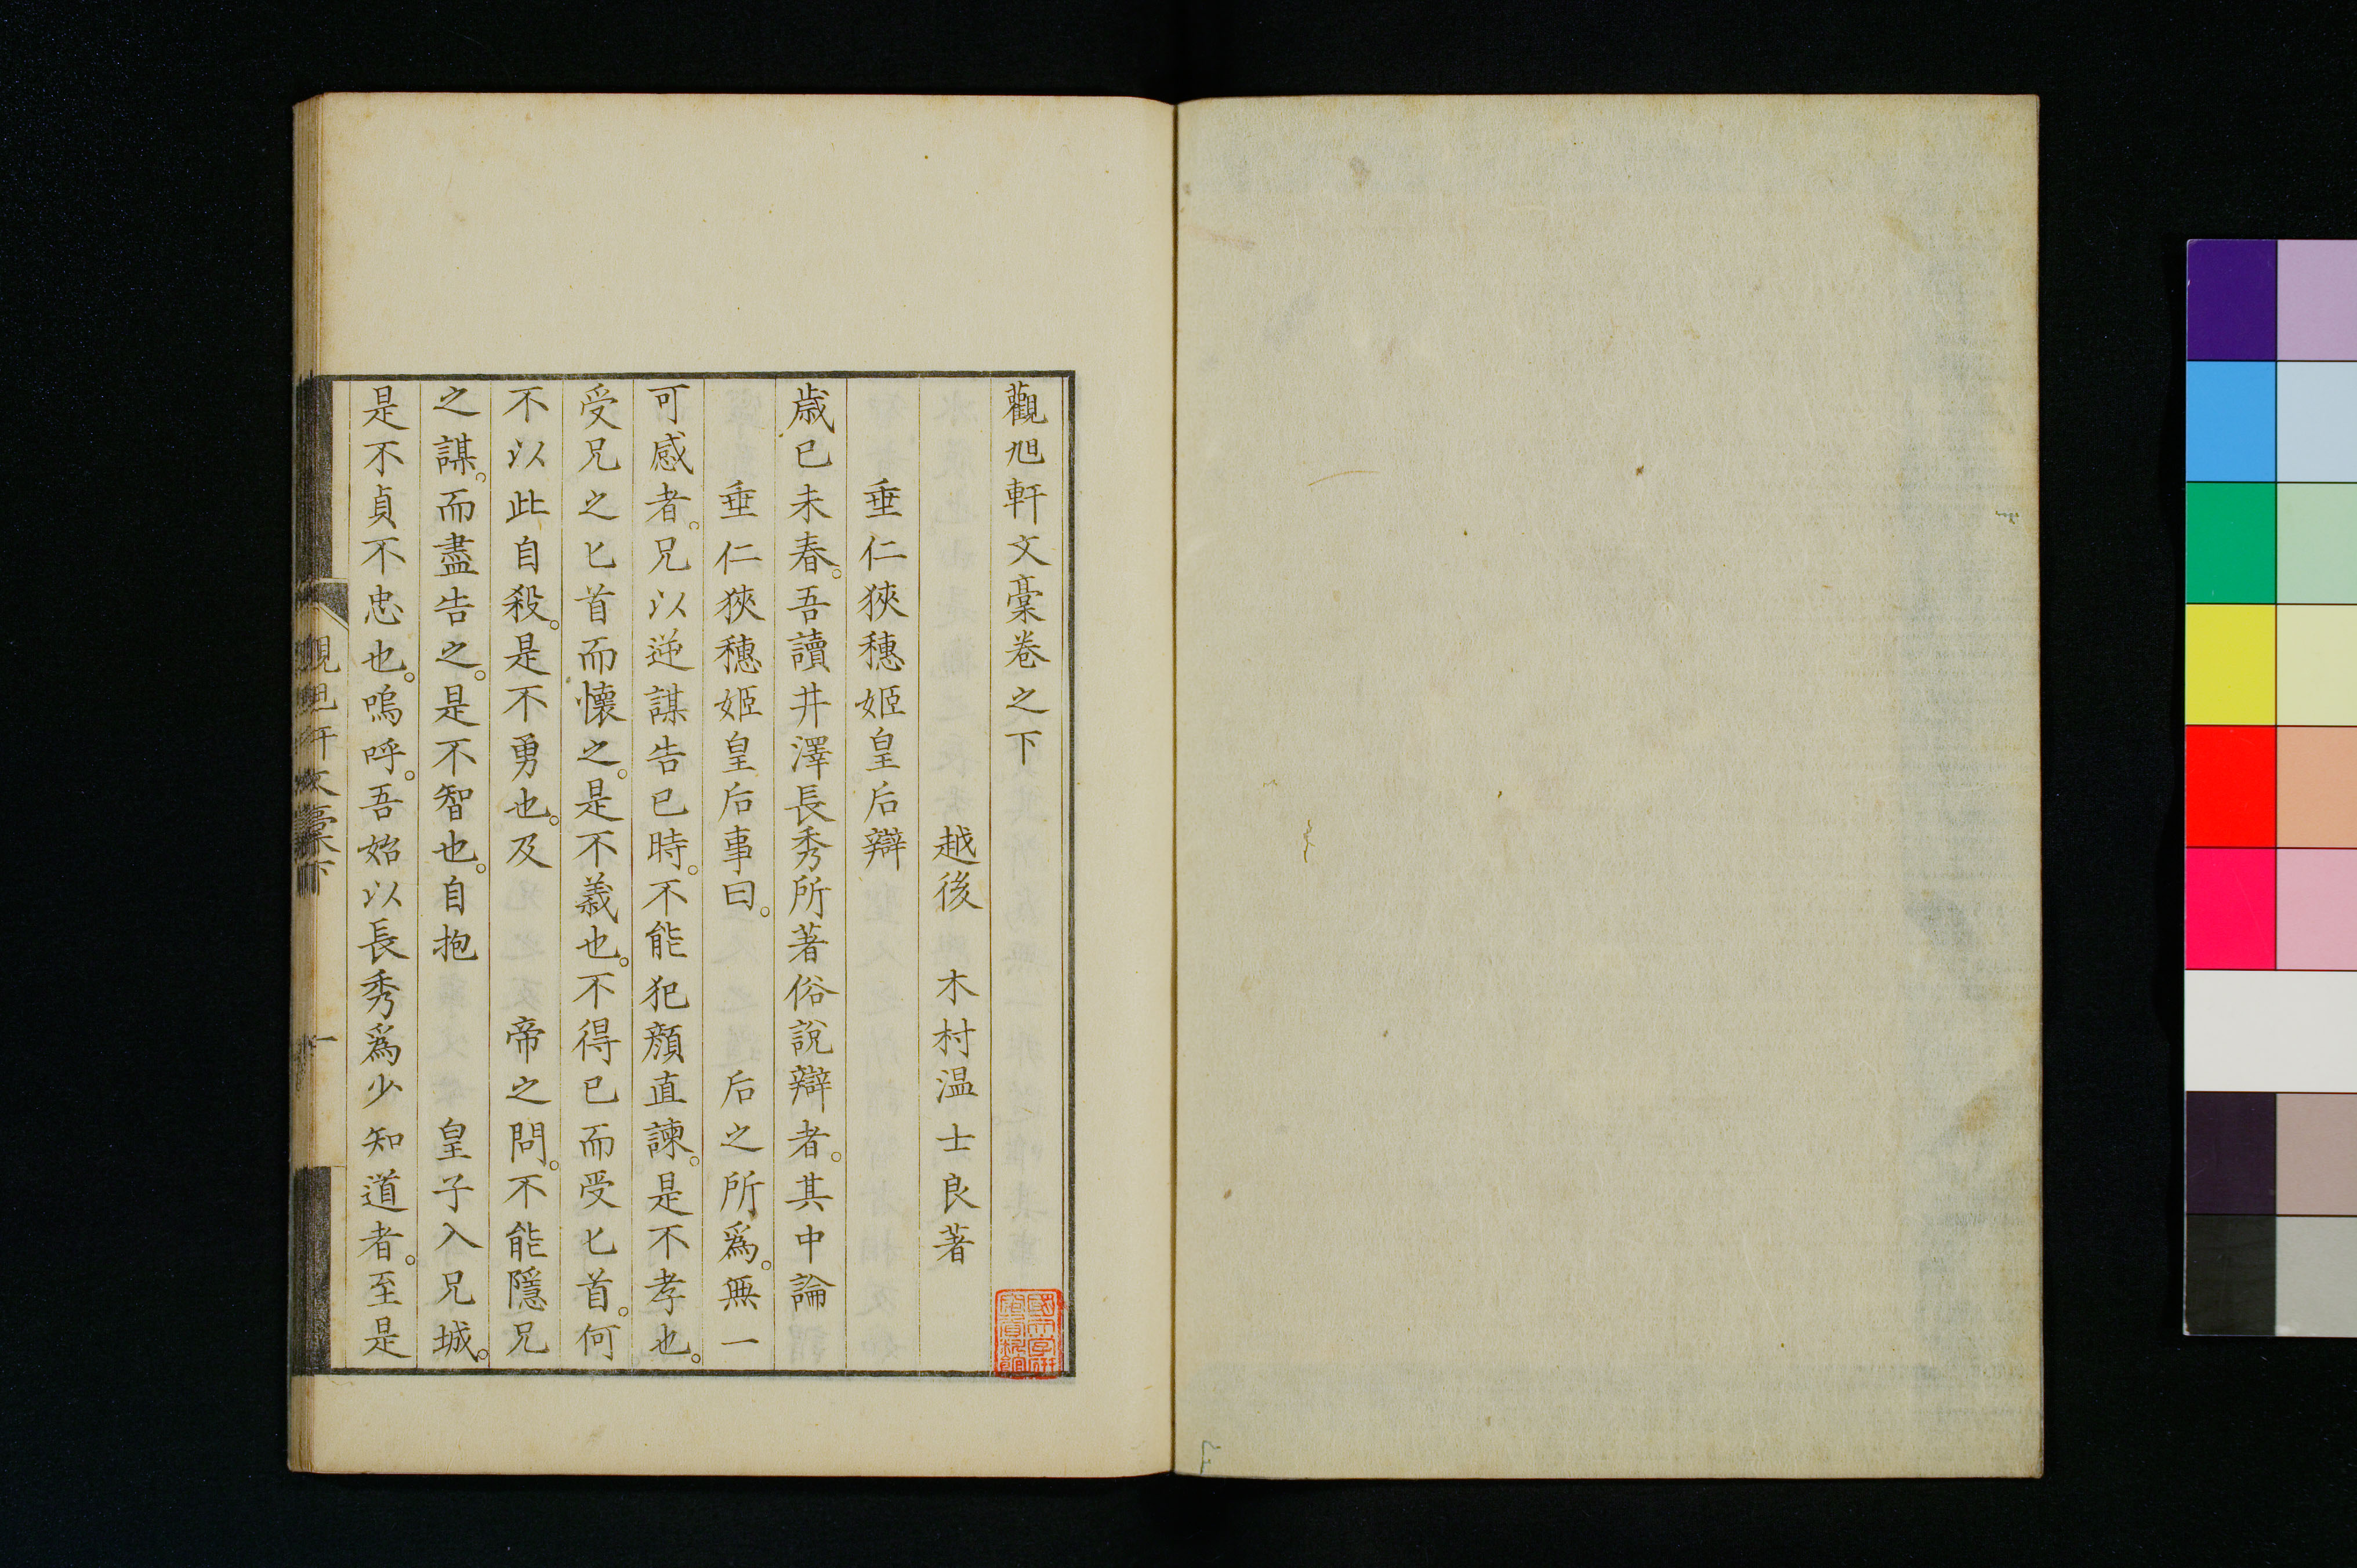 觀旭軒文稾卷之下
越後 木村温士良著
垂仁狹穗姬皇后辯
歲已未春。吾讀井澤長秀所著俗說辯者。其中論
垂仁狹穗姬皇后事曰。 后之所爲。無一
可感者。兄以逆謀告已時。不能犯顏直諫。是不孝也。
受兄之匕首而懷之。是不義也。不得已而受匕首。何
不以此自殺。是不勇也。及 帝之問。不能隱兄
之謀。而盡告之。是不智也。自抱 皇子入兄城。
是不貞不忠也。嗚呼。吾始以長秀爲少知道者。至是